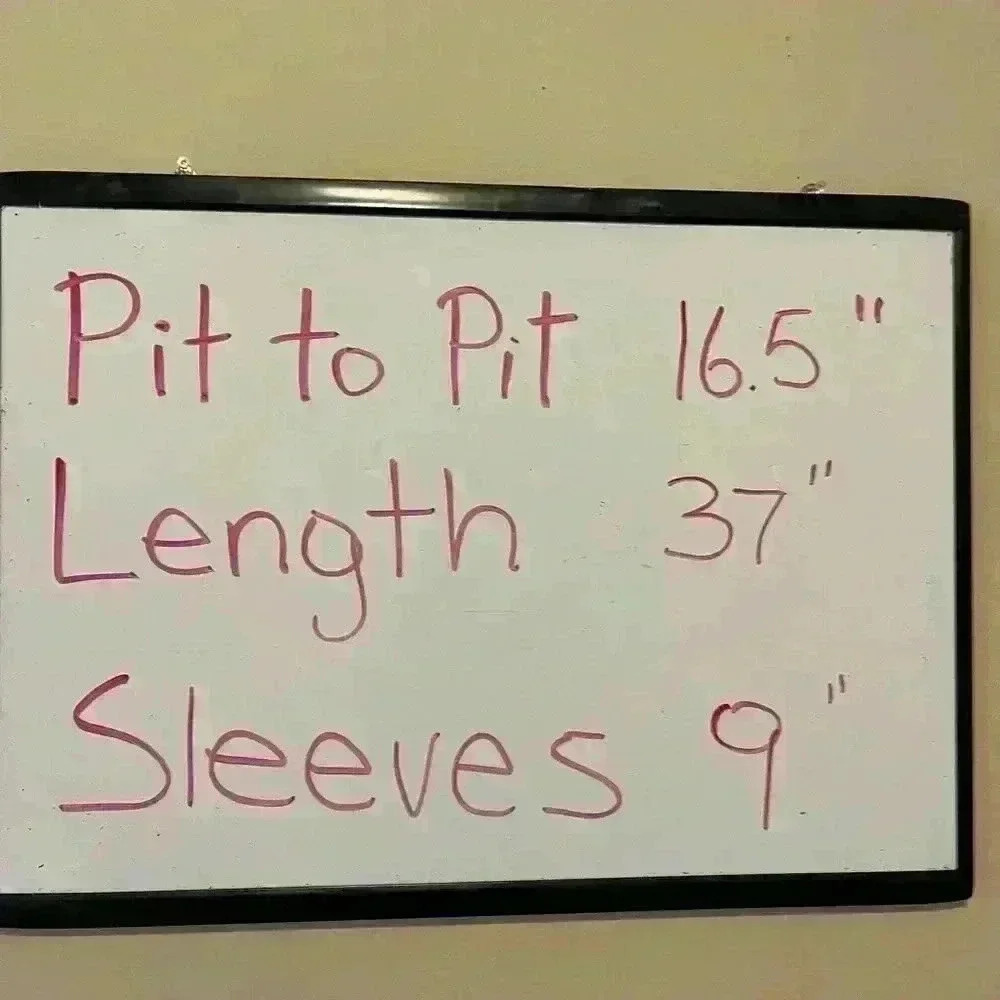 Pit to Pit 16.5"
Length 37"
Sleeves 9"